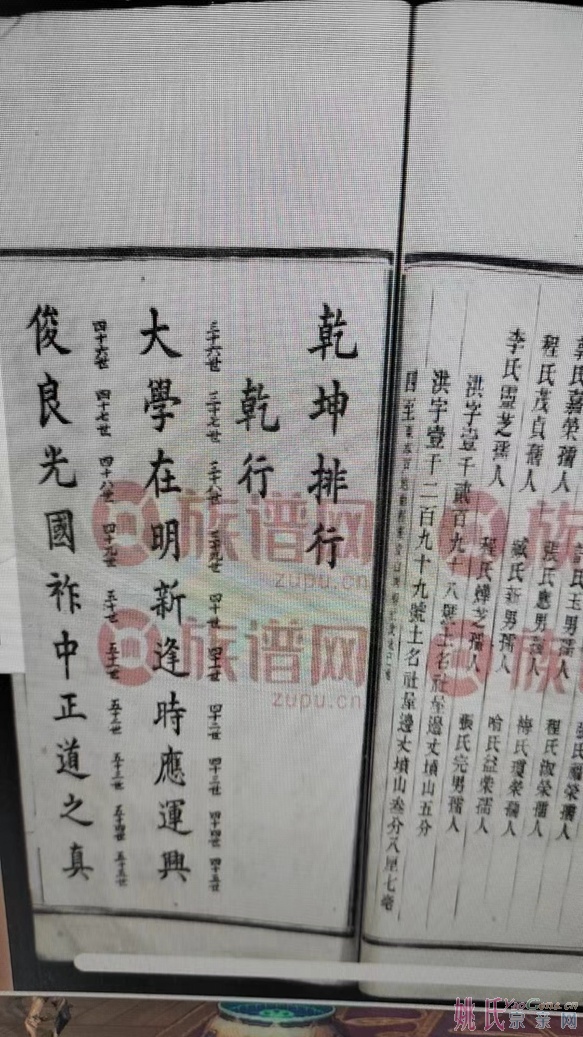 程氏茂貞孺人
李氏靈芝孺人
程氏淑榮孺人
臧氏新男孺人
梅氏瓊榮孺人
洪字壹千貳百九十八號土名社屋邊丈墳山五分
程氏煒芝孺人
哈氏益榮孺人
洪字壹千二百九十九號土名社屋邊丈墳山叁分八厘七毫
張氏完男孺人
四至
乾坤排行
乾行
三十六世 三十七世 三十八世 三十九世 四十世 四十一世 四十二世 四十三世 四十四世 四十五世
大學在明新逢時應運興
四十六世 四十七世 四十八世 四十九世 五十世 五十一世 五十二世 五十三世 五十四世 五十五世
俊良光國祚中正道之真
族谱网
zupu.cn
族谱网
zupu.cn
族
族谱
姚氏宗亲网
YaoGens.cn